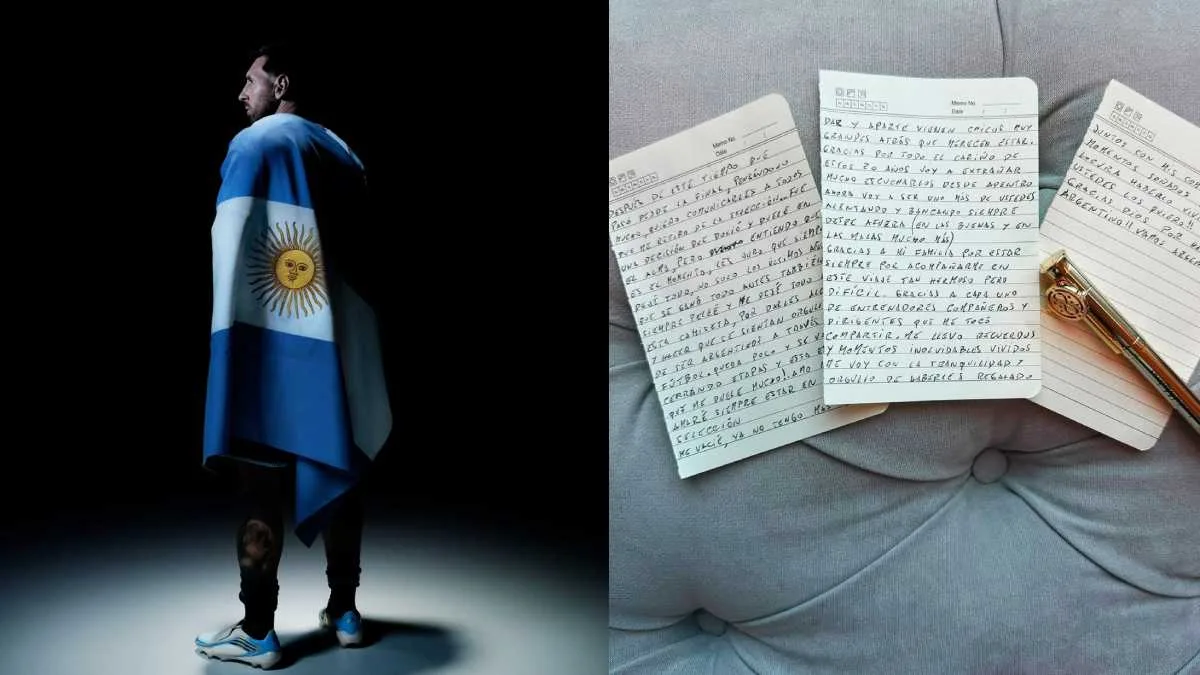 Memo No.
Date / /
DESPUÉS DE ESTE TIEMPO QUE
PASÓ DESDE LA FINAL, PENSÁNDOLO
MUCHO, QUIERO COMUNICARLES A TODOS
QUE ME RETIRO DE LA SELECCIÓN. FUE
UNA DECISIÓN QUE DOLIÓ Y DUELE EN
EL ALMA, PERO ENTIENDO QUE
ES EL MOMENTO, LES JURO QUE SIEMPRE
DEJÉ TODO, NO SOLO LOS ÚLTIMOS AÑOS
QUE SE GANÓ TODO ANTES TAMBIÉN
SIEMPRE PELEÉ Y ME DEJÉ TODO
ESTA CAMISETA, POR DARLES ALE
Y HACER QUE SE SIENTAN ORGULL
DE SER ARGENTINOS A TRAVÉS
FÚTBOL. QUEDA POCO Y SE V
CERRANDO ETAPAS Y ESTA E
QUE ME DUELE MUCHO! AMO
AMARÉ SIEMPRE ESTAR EN
SELECCIÓN
ME VACIÉ, YA NO TENGO MÁS
Memo No.
Date / /
DAR Y APARTE VIENEN CHICOS MUY
GRANDES ATRÁS QUE MERECEN ESTAR.
GRACIAS POR TODO EL CARIÑO DE
ESTOS 20 AÑOS VOY A EXTRAÑAR
MUCHO ESCUCHARLOS DESDE ADENTRO
AHORA VOY A SER UNO MÁS DE USTEDES
ALENTANDO Y BANCANDO SIEMPRE
DESDE AFUERA (EN LAS BUENAS Y EN
LAS MALAS MUCHO MÁS)
GRACIAS A MI FAMILIA POR ESTAR
SIEMPRE POR ACOMPAÑARME EN
ESTE VIAJE TAN HERMOSO PERO
DIFÍCIL. GRACIAS A CADA UNO
DE ENTRENADORES COMPAÑEROS Y
DIRIGENTES QUE ME TOCÓ
COMPARTIR. ME LLEVO RECUERDOS
Y MOMENTOS INOLVIDABLES VIVIDOS
ME VOY CON LA TRANQUILIDAD Y
ORGULLO DE HABERLES REGALADO
JUNTOS CON MIS COM
MOMENTOS SOÑADOS
LOCURA HABERLO VIVI
USTEDES LOS QUIERO!!
GRACIAS DIOS POR H
ARGENTINO!! VAMOS ARGEN